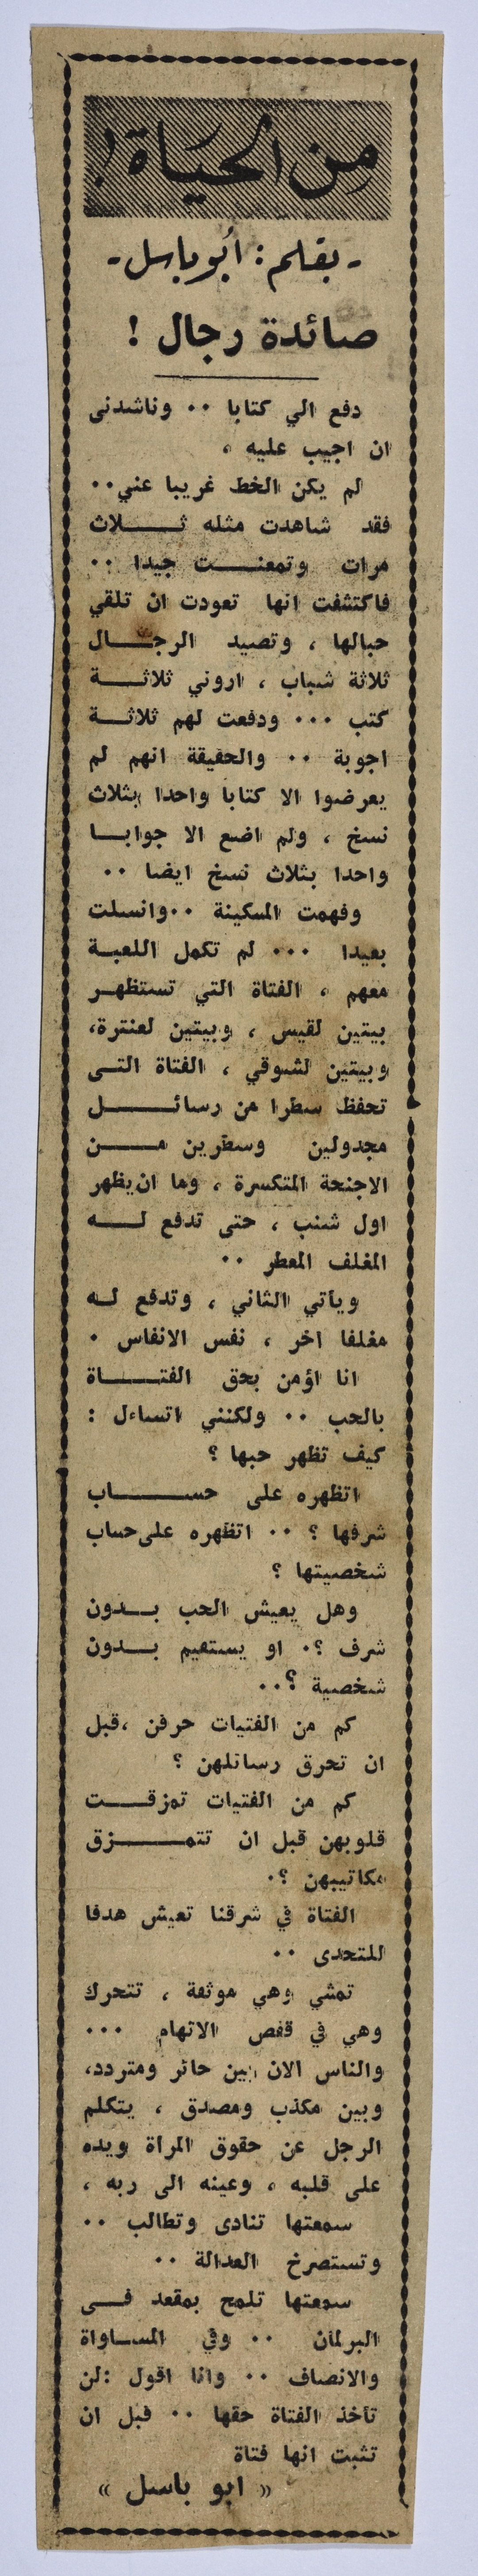 من الحياة !
- بقلم : أبو باسل -
صائدة رجال !
دفع الي كتابا .. وناشدنى
ان اجيب عليه ،
لم يكن الخط غريبا عني ..
فقد شاهدت مثله ثـــلاث
مرات وتمعنـــت جيدا ..
فاكتشفت انها تعودت ان تلقي
حبالها ، وتصيد الرجـــال
ثلاثة شباب ، اروني ثلاثـــة
كتب ... ودفعت لهم ثلاثـــة
اجوبة .. والحقيقة انهم لم
يعرضوا الا كتابا واحدا بثلاث
نسخ ، ولم اضع الا جوابـــا
واحدا بثلاث نسخ ايضا ..
وفهمت المسكينة .. وانسلت
بعيدا ... لم تكمل اللعبـة
معهم ، الفتاة التي تستظهـر
بيتين لقيس ، وبيتين لعنترة،
وبيتين لشوقي ، الفتاة التـى
تحفظ سطرا من رسائـــل
مجدولين وسطرين مـــن
الاجنحة المتكسرة ، وما ان يظهر
اول شنب ، حتى تدفع لـــه
المغلف المعطر ..
ويأتي الثاني ، وتدفع لـه
مغلفا اخر ، نفس الانفاس .
انا اؤمن بحق الفتـــاة
بالحب .. ولكنني اتساءل :
كيف تظهر حبها ؟
اتظهره على حســـاب
شرفها ؟ .. اتظهره على حساب
شخصيتها ؟
وهل يعيش الحب بـــدون
شرف ؟. او يستقيم بـــدون
شخصية ؟..
كم من الفتيات حرقن ،قبل
ان تحرق رسائلهن ؟
كم من الفتيات تمزقـــت
قلوبهن قبل ان تتمـــزق
مكاتيبهن ؟.
الفتاة في شرقنا تعيش هدفا
للمتحدى ..
تمشي وهي موثقة ، تتحرك
وهي في قفص الاتهام ...
والناس الان بين حائر ومتردد،
وبين مكذب ومصدق ، يتكلم
الرجل عن حقوق المراة ويده
على قلبه ، وعينه الى ربه ،
سمعتها تنادى وتطالب ..
وتستصرخ العدالة ..
سمعتها تلمح بمقعد فـــى
البرلمان .. وفي المســاواة
والانصاف .. وانا اقول :لن
تأخذ الفتاة حقها .. قبل ان
تثبت انها فتاة
« ابو باسل »